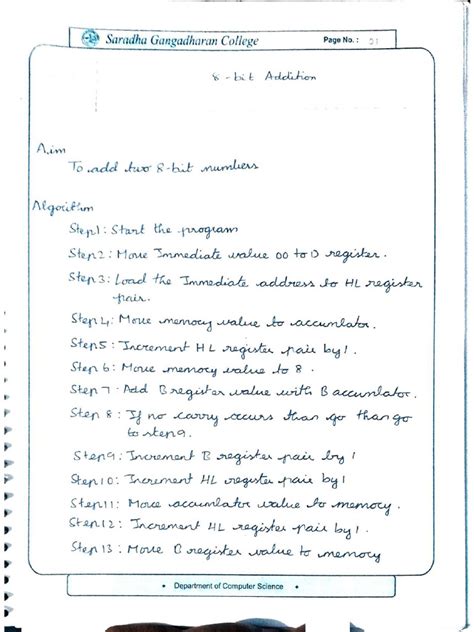 Saradha Gangadharan College
Page No. : 21
8-bit Addition
Aim
To add two 8-bit numbers
Algorithm
Step1: Start the program
Step2: Move Immediate value 00 to D register.
Step3: Load the Immediate address to HL register
pair.
Step 4: Move memory value to accumlator.
Step5: Increment HL register pair by 1.
Step 6: Move memory value to 8.
Step 7- Add B register value with B accumlator.
Step 8: If no carry occurs than go than go
to step9.
Step9: Increment B register pair by 1
Step10: Increment HL register pair by 1
Step11: Move accumlator value to memory.
Step12: Increment HL register pair by 1.
Step 13: Move B register value to memory
• Department of Computer Science •